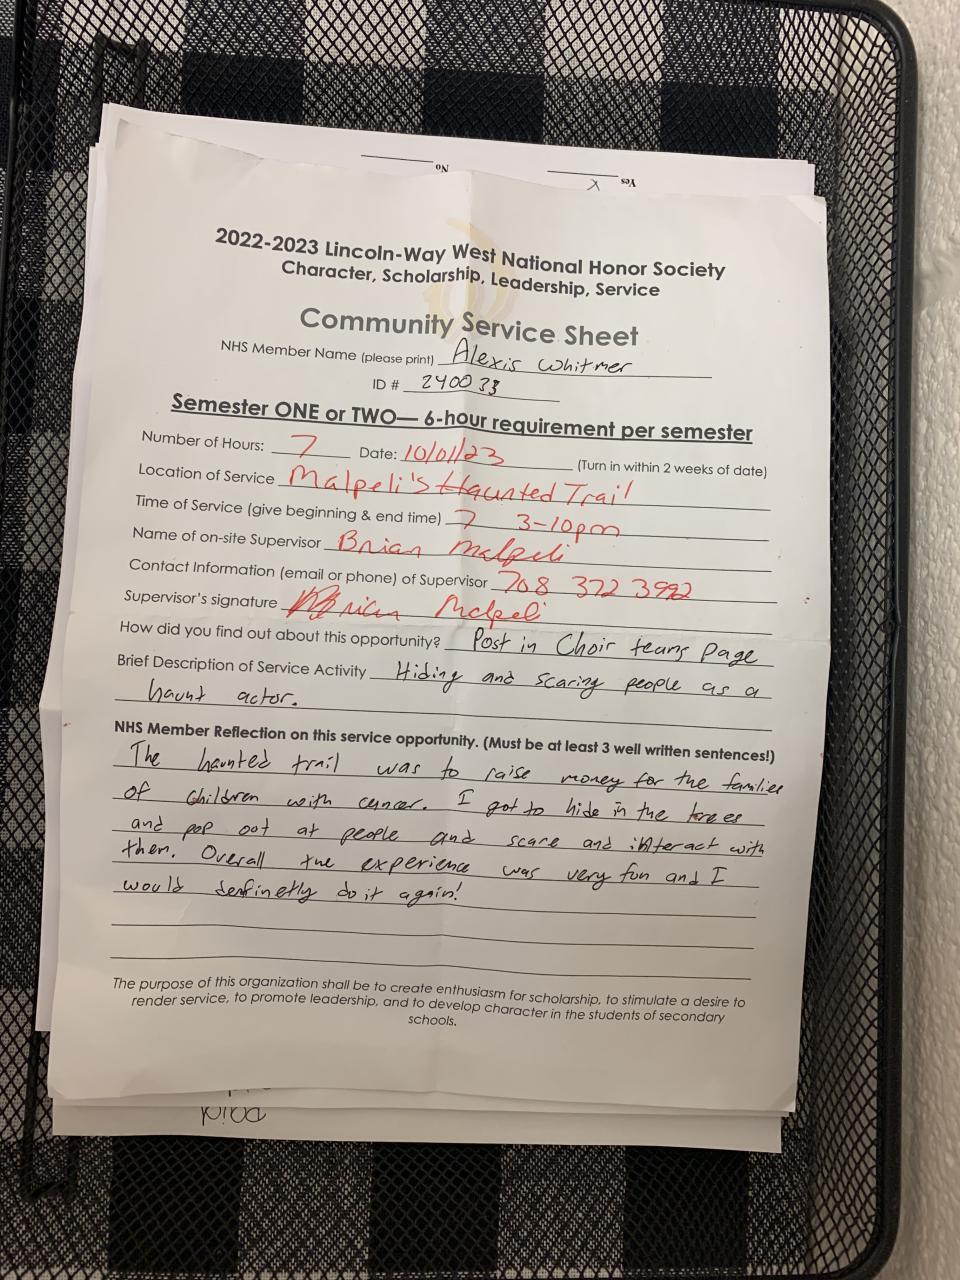 No
Yes
X
2022-2023 Lincoln-Way West National Honor Society
Character, Scholarship, Leadership, Service
Community Service Sheet
NHS Member Name (please print) Alexis Whitmer
ID # 240033
Semester ONE or TWO— 6-hour requirement per semester
Number of Hours: 7 Date: 10/01/23 (Turn in within 2 weeks of date)
Location of Service Malpeli's Haunted Trail
Time of Service (give beginning & end time) 7 3-10pm
Name of on-site Supervisor Brian Malpeli
Contact Information (email or phone) of Supervisor 708 372 3992
Supervisor's signature Brian Malpeli
How did you find out about this opportunity? Post in Choir teams page
Brief Description of Service Activity Hiding and scaring people as a
haunt actor.
NHS Member Reflection on this service opportunity. (Must be at least 3 well written sentences!)
The haunted trail was to raise money for the families
of children with cancer. I got to hide in the trees
and pop out at people and scare and interact with
them. Overall the experience was very fun and I
would denfinetly do it again!
The purpose of this organization shall be to create enthusiasm for scholarship, to stimulate a desire to
render service, to promote leadership, and to develop character in the students of secondary
schools.